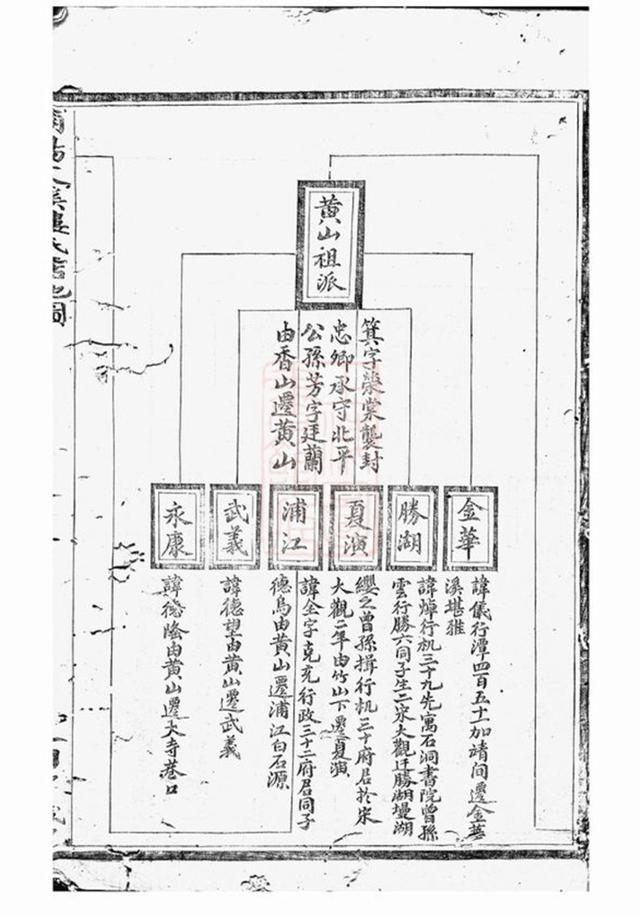 黄山祖派
箕字榮棠襲封
忠卿承守北平
公孫芳字廷蘭
由香山遷黄山
金華
諱儀行潭四百五十加靖间遷金華
溪堪雅
勝湖
諱焯行机三十九先寓石洞書院曾孫
雲行勝六同子生二宋大觀迁勝湖墁湖
夏演
纓之曾孫揖行机三十府居於宋
大觀二年由竹山下遷夏演
浦江
諱全字克充行政三十二府居同子
德鳥由黄山遷浦江白石源
武義
諱德望由黄山遷武義
永康
諱德隆由黄山遷大寺巷口